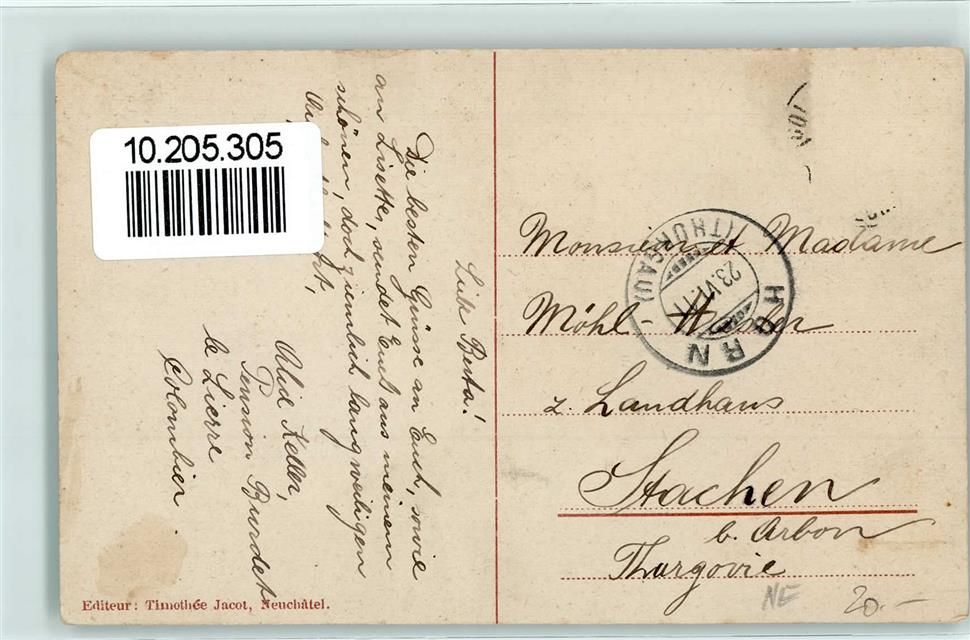 10.205.305
Liebe Berta!
Die besten Grüsse an Euch, sowie
an Lisette, sendet Euch aus meinem
schönen, doch ziemlich langweiligen
Keller,
Pension Burdet
le Lierre
Colombier
Editeur: Timothée Jacot, Neuchâtel.
HORN
(THURGAU)
23.VI.11
Monsieur et Madame
Möhl
z. Landhaus
Stachen
b. Arbon
Thurgovie
NE
20.-